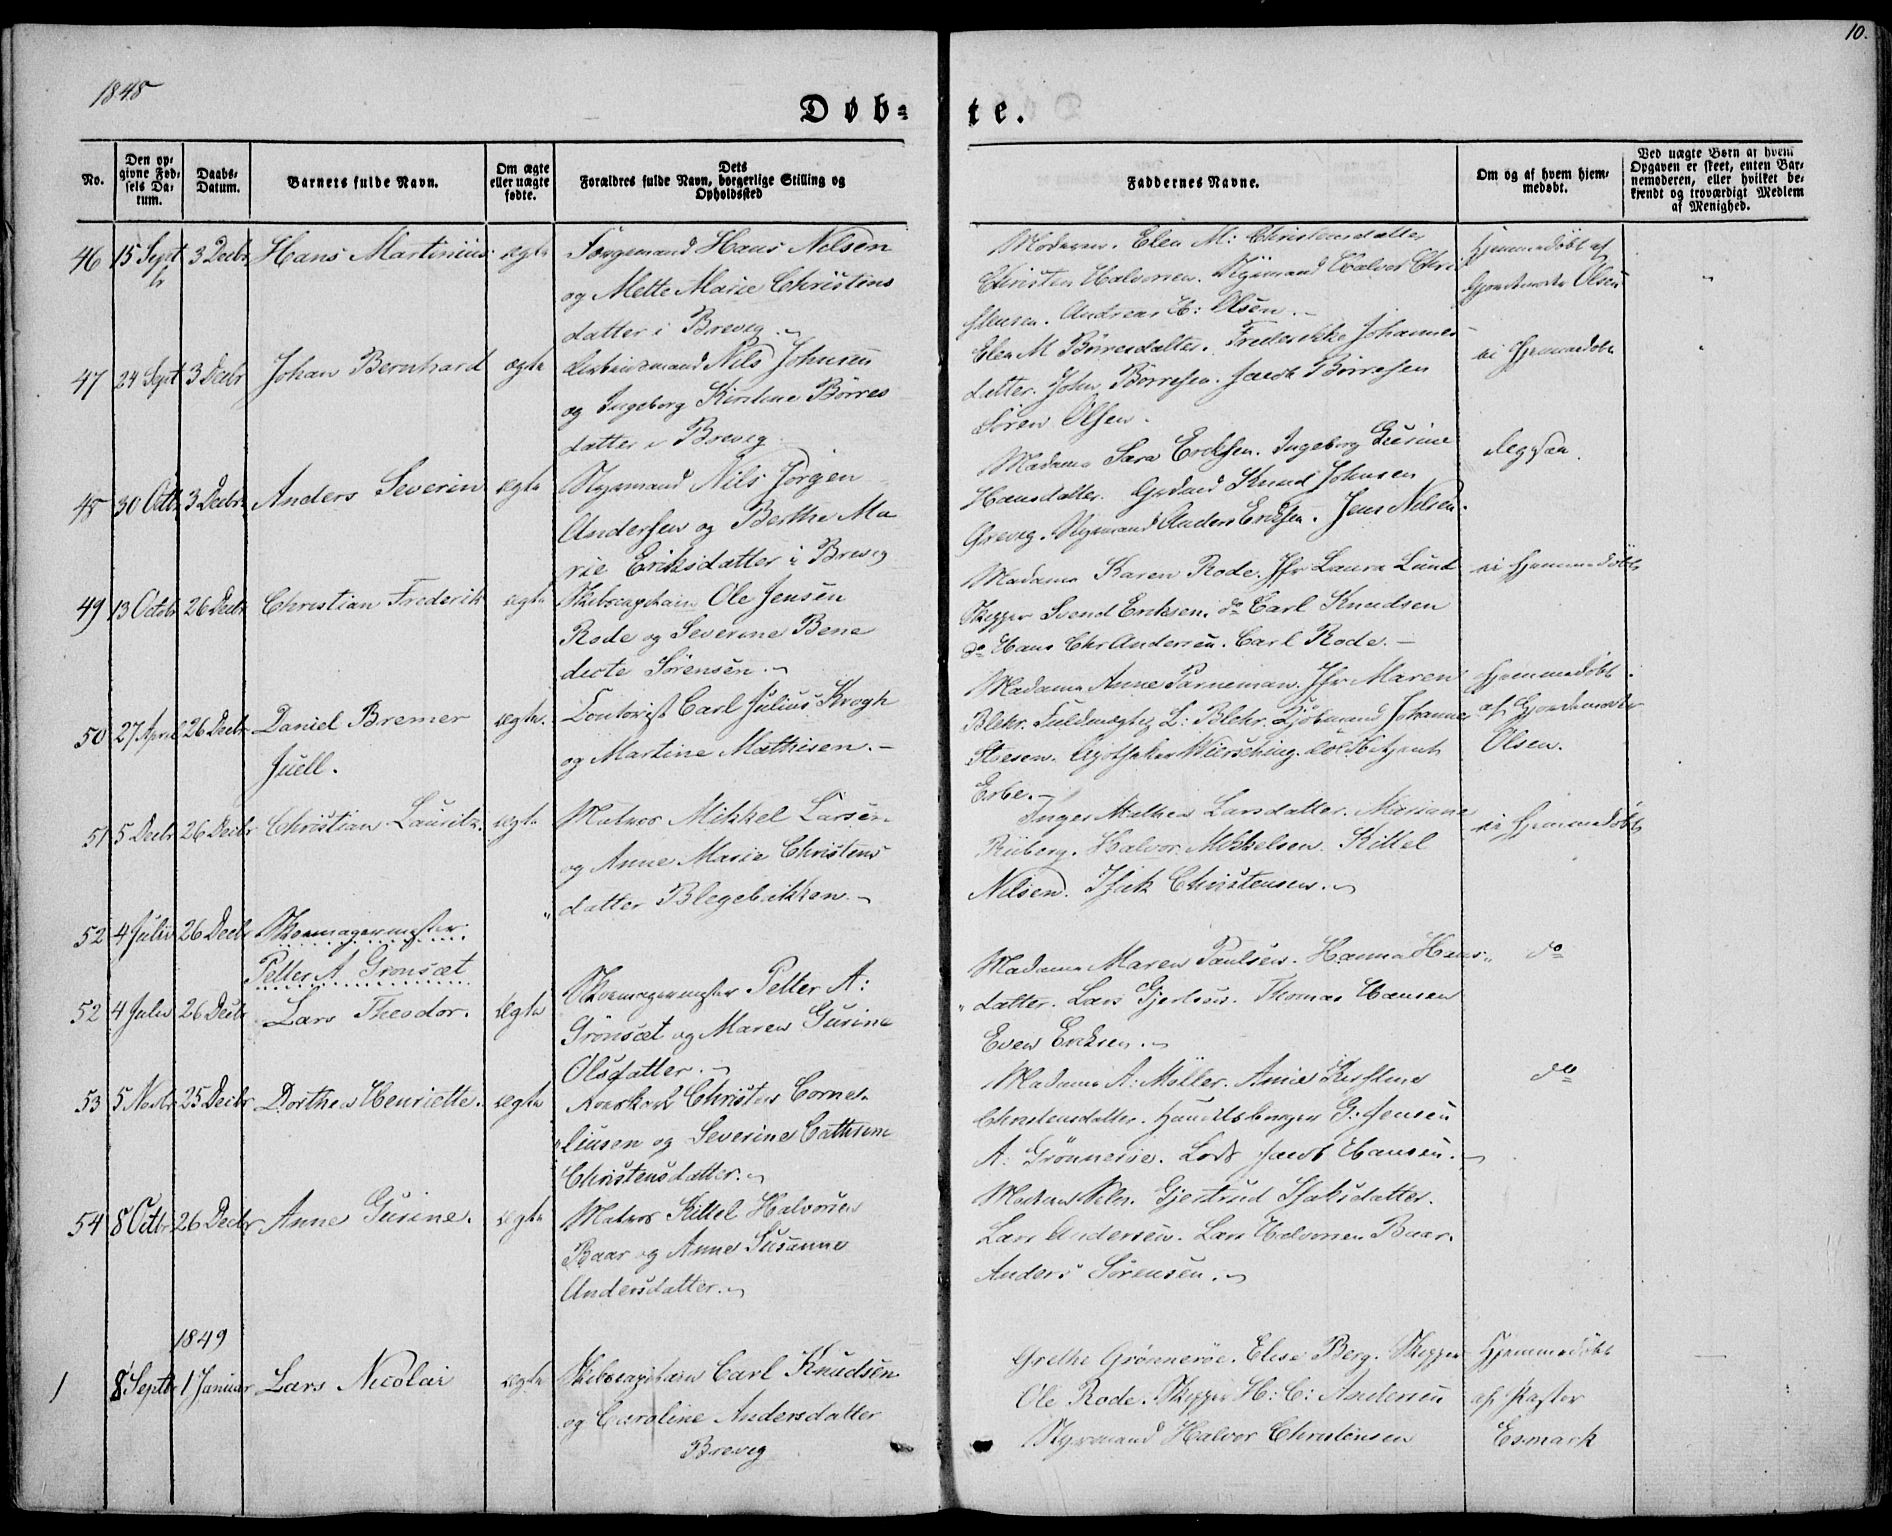 10.
1848
Døb=
te.
No.
Den op-
givne Fød-
sels Da-
tum.
Daabs-
Datum.
Barnets fulde Navn.
Om ægte
eller uægte
fødte.
Dets
Forældres fulde Navn, borgerlige Stilling og
Opholdssted
Faddernes Navne.
Om og af hvem hjem-
medøbt.
Ved uægte Børn af hvem
Opgaven er skeet, enten Bar-
nemoderen, eller hvilket be-
kjendt og troværdigt Medlem
af Menighed.
46 15 Sept 3 Decbr Hans Martinius. ægte
Hans Nelsen
og Mette Marie Christens
datter i Brevig
Moderen. Elen M: Christensdatter
Christen Halvorsen. Styrmand Halvor Chri
stensen. Andreas H: Olsen.
Hjemmedøbt af
Gjordemoder Olsen
47 24 Sept 3 Decbr Johan Bernhard ægte
Arbeidsmand Nils Johnsen
og Ingeborg Kirstine Børres
datter i Brevig
Elen M Børresdatter. Frederikke Johannes
datter. John Børresen. Jacob Børresen
Søren Olsen.
ei Hjemmedøbt
48 30 Octb 3 Decbr Anders Severin ægte
Styrmand Nils Jørgen
Andersen og Berthe Ma
rie Eriksdatter i Brevig
Madame Sara Ericksen. Ingeborg Gurine
Hansdatter. Knud Johnsen
Styrmand Anders Ericksen. Jens Nelsen.
ligesaa.
49 13 Octbr 26 Decbr Christian Frederik ægte
Skibscapitain Ole Jensen
Rode og Severine Bene
decte Sørensen.
Madame Karen Rode. Jfr Laura Lund
Skipper Svend Eriksen. do Carl Knudsen
do Hans Chr Andersen. Carl Rode.
ei Hjemmedøbt
50 27 April 26 Decbr Daniel Bremer
Juell.
ægte.
Contorist Carl Julius Krogh
og Martine Mathisen.
Madame Anne Parneman. Jfr Maren
Blehr. Fuldmægtig L: Blehr. Kjøbmand Johannes
Stoesen. Apotheker Wiersching. Toldbetjent
Erbe.
Hjemmedøbt
af Gjordemoder
Olsen.
51 5 Decbr 26 Decbr Christian Lauritz. ægte
Matros Mikkel Larsen
og Anne Marie Christens
datter Blegebakken.
Inger Mathea Larsdatter. Mariane
Riiberg. Halvor Mikkelsen. Kittel
Nilsen. Isak Christensen.
ei Hjemmedøbt
52 4 Julii 26 Decbr Skomagermester
Petter A Grønsæt
52 4 Julii 26 Decbr Lars Theodor. ægte
Skomagermester Petter A:
Grønsæt og Maren Gurine
Olsdatter.
Madame Maren Paulsen. Hanna Hans
datter. Lars Gjertsen. Thomas Hansen
Even Eriksen.
do
53 5 Novbr 25 Decbr Dorthea Henriette. ægte
Christen Corne-
liusen og Severine Cathrine
Christensdatter.
Madame A: Møller. Anne Kirstine
Christensdatter. Handelsborger G: Jensen
A: Grønnerøe. Lods Jacob Hansen.
do
54 8 Octbr 26 Decbr Anne Gurine. ægte
Matros Kittel Halvorsen
Baar og Anne Susanne
Andersdatter.
Gjertrud Isaksdatter.
Lars Andersen. Lars Halvorsen Baar.
Anders Sørensen.
1849
1 8 Septbr 1 Januar Lars Nicolai ægte
Skibscapitain Carl Knudsen
og Caroline Andersdatter
Brevig
Grethe Grønnerøe. Elise Berg. Skipper
Ole Rode. Skipper H: C: Andersen
Styrmand Halvor Christensen
Hjemmedøbt
af Pastor
Esmark